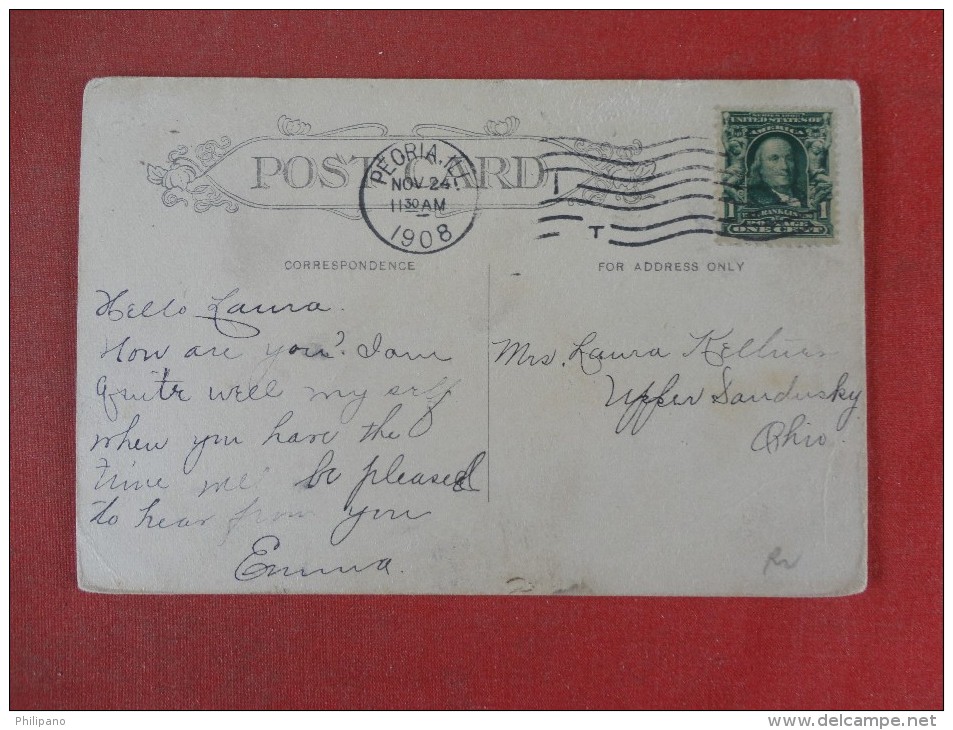 POST CARD
PEORIA, ILL.
NOV 24
11 30 AM
1908
T
SERIES 1902
UNITED STATES OF
AMERICA
FRANKLIN
1 POSTAGE 1
ONE CENT
CORRESPONDENCE
FOR ADDRESS ONLY
Hello Laura.
How are you? I am
quite well my self
when you have the
time be pleased
to hear from you
Emma.
Mrs. Laura
Upper Sandusky
Ohio.
Philipano
www.delcampe.net